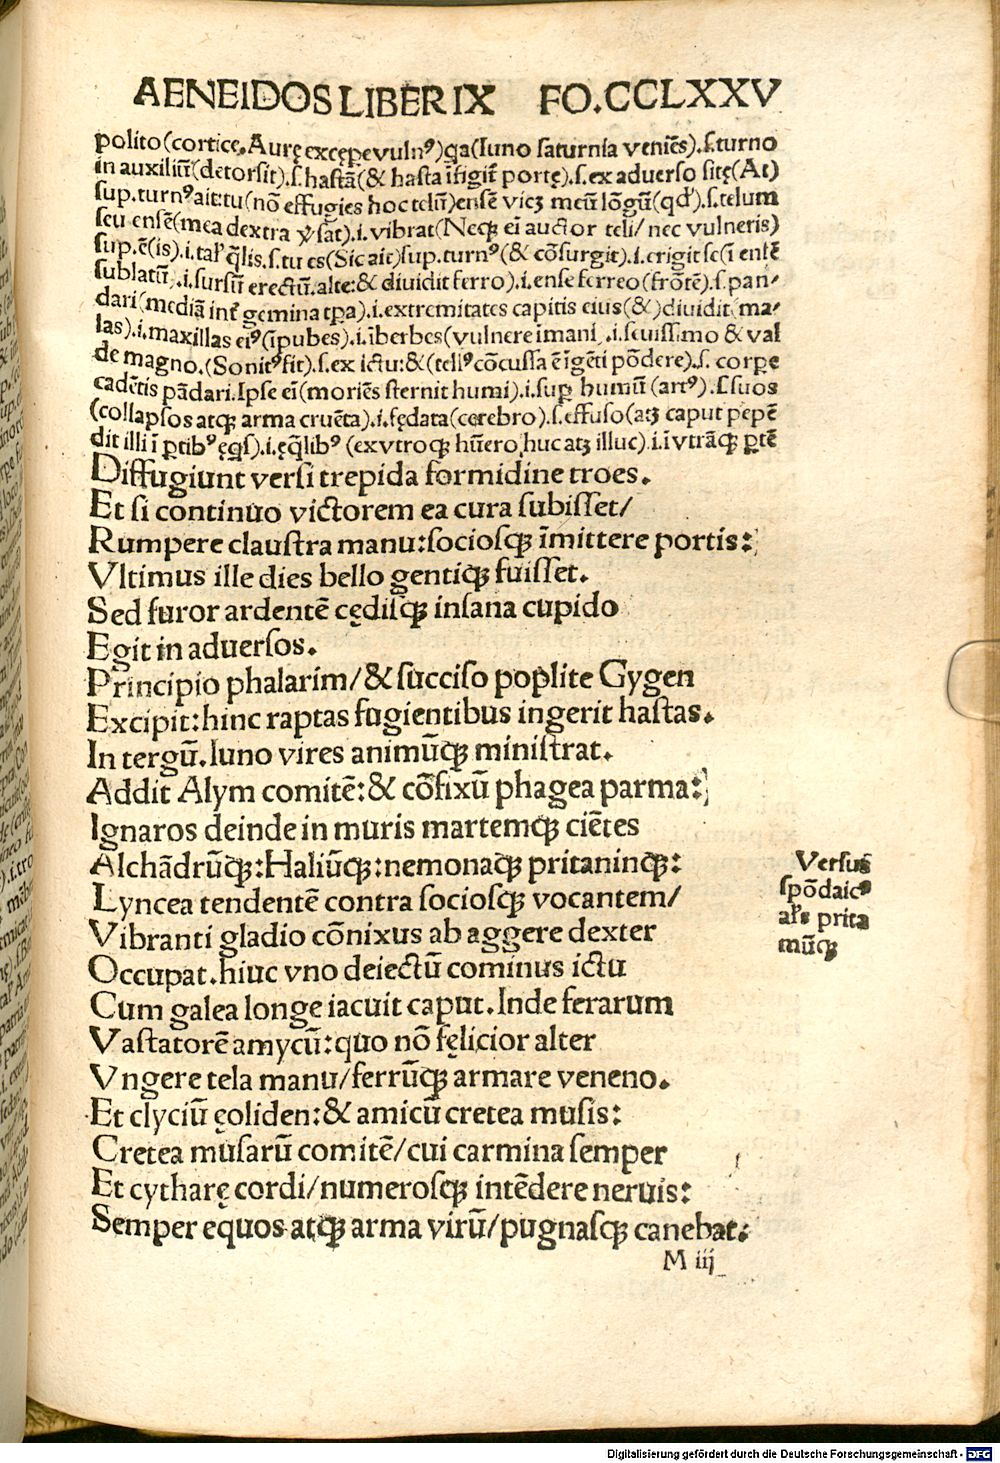 AENEIDOS LIBER IX FO.CCLXXV
polito(cortice. Aurę excępe vulnꝰ)qa(Iuno saturnia veniẽs).s.turno
in auxiliũ(detorsit).s.hastã(& hasta ĩfigit̃ portę).s.ex aduerso sitę(At)
sup.turnꝰ ait:tu(nõ effugies hoc telũ)ensẽ vicꝫ meũ lõgũ(qđ).s.telum
seu ensẽ(mea dextra ꝟsat).i.vibrat(Necꝫ ei auctor teli/ nec vulneris)
sup.ẽ(is).i.tal̃ q̃lis.s.tu es(Sic ait)sup.turnꝰ(& cõsurgit).i.erigit se(ĩ ensẽ
sublatũ).i.sursũ erectũ.alte:& diuidit ferro).i.ense ferreo(frõtẽ).s.pan-
dari(mediã int̃ gemina tp̃a).i.extremitates capitis eius(&)diuidit(ma-
las).i.maxillas eiꝰ(ĩpubes).i.ĩberbes(vulnere ĩmani).i.seuissimo & val
de magno.(Sonitꝰ fit).s.ex ictu:&(tellꝰ cõcussa ẽ ĩgẽti põdere).s.corpe
cadẽtis pãdari.Ipse eĩ(moriẽs sternit humi).i.suꝑ humũ(artꝰ).s.suos
(collapsos atqꝫ arma cruẽta).i.fędata(cerebro).s.effuso(atꝫ caput pepẽ
dit illi ĩ ꝑtibꝰ ęqs̃).i.ęq̃libꝰ (ex vtroqꝫ hũero huc atꝫ illuc).i.ĩ vtrãqꝫ ꝑtẽ
Diffugiunt versi trepida formidine troes.
Et si continuo victorem ea cura subisset/
Rumpere claustra manu:sociosqꝫ ĩmittere portis:
Vltimus ille dies bello gentiqꝫ fuisset.
Sed furor ardentẽ cędisqꝫ insana cupido
Egit in aduersos.
Principio phalarim/& succiso poplite Gygen
Excipit:hinc raptas fugientibus ingerit hastas.
In tergũ.Iuno vires animũqꝫ ministrat.
Addit Alym comitẽ:& cõfixũ phagea parma:
Ignaros deinde in muris martemqꝫ ciẽtes
Alchãdrũqꝫ:Haliũqꝫ:nemonaqꝫ pritaninqꝫ:
Lyncea tendentẽ contra sociosqꝫ vocantem/
Vibranti gladio cõnixus ab aggere dexter
Occupat.hiuc vno deiectũ cominus ictu
Cum galea longe iacuit caput.Inde ferarum
Vastatorẽ amycũ:quo nõ fęlicior alter
Vngere tela manu/ferrũqꝫ armare veneno.
Et clyciũ ęoliden:& amicũ cretea musis:
Cretea musarũ comitẽ/cui carmina semper
Et cytharę cordi/numerosqꝫ intẽdere neruis:
Semper equos atqꝫ arma virũ/pugnasqꝫ canebat.
M iij
Versus̃
spõdaicꝰ
al̃s prita
mũqꝫ
Digitalisierung gefördert durch die Deutsche Forschungsgemeinschaft - DFG